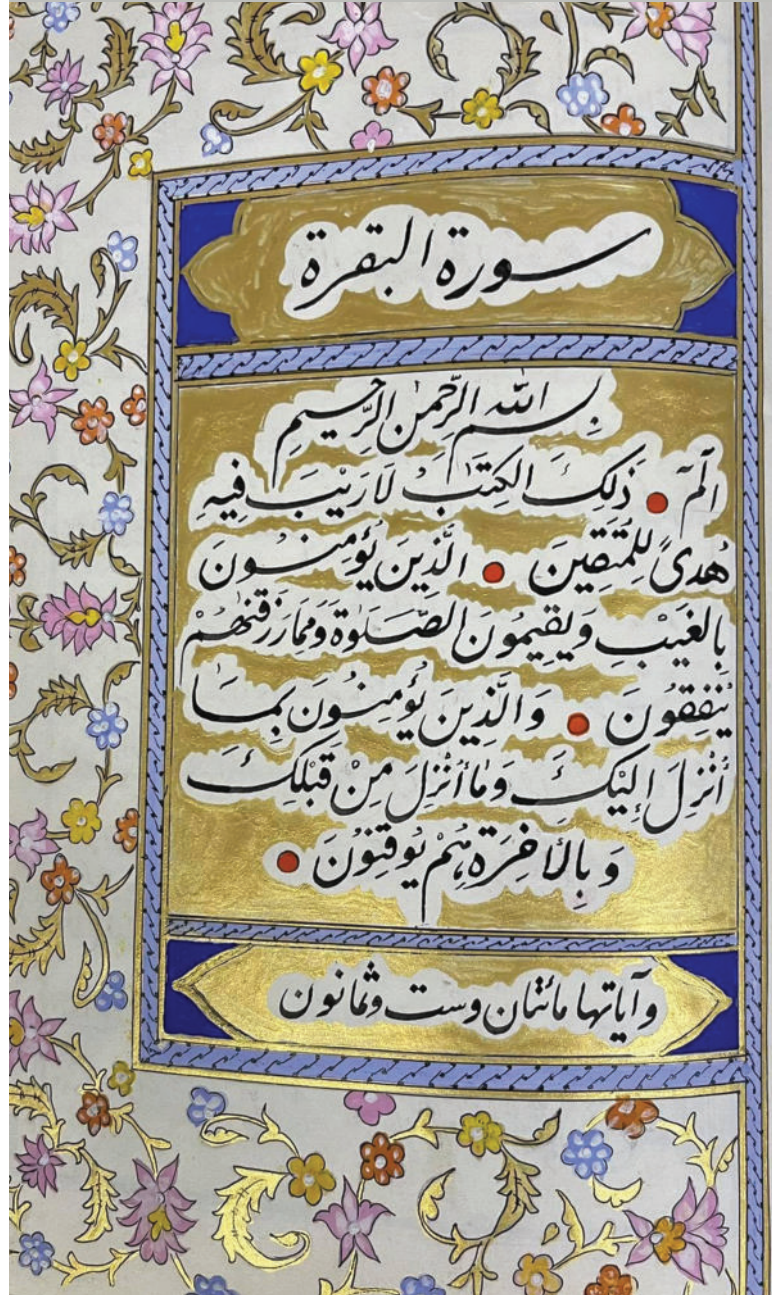 سورة البقرة
بِسْمِ اللّٰهِ الرَّحْمٰنِ الرَّحِيمِ
الٓمٓ ● ذٰلِكَ الكِتٰبُ لَا رَيْبَ فِيهِ
هُدىً لِلْمُتَّقِينَ ● الَّذِينَ يُؤمِنُونَ
بِالغَيْبِ وَيُقِيمُونَ الصَّلَوٰةَ وَمِمَّا رَزَقنٰهُمْ
يُنْفِقُونَ ● وَالَّذِينَ يُؤْمِنُونَ بِمَا
أُنْزِلَ إِلَيْكَ وَمَا أُنْزِلَ مِنْ قَبْلِكَ
وَبِالأخِرَةِ هُمْ يُوقِنُونَ ●
وآياتها مائتان وست وثمانون